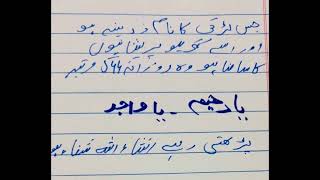 جس لڑکی کا نام زرینہ ہو
اور اسے گھریلو پریشانیوں
کا سامنا ہو وہ روزانہ مرتبہ
یا رحیم ۔ یا واجد
پڑھتی رہے انشاء اللہ شفاء ہو